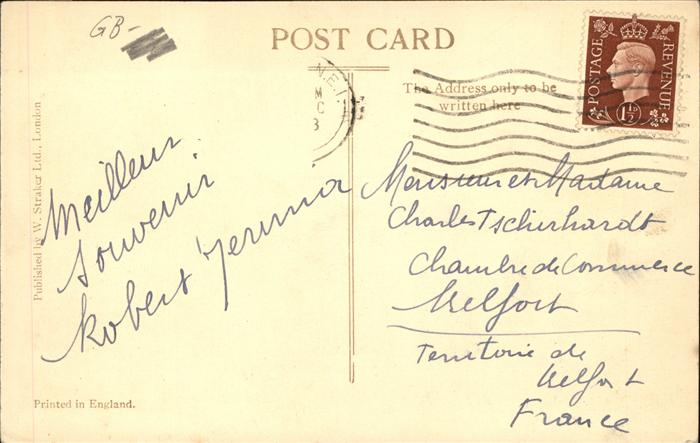 GB-
POST CARD
The Address only to be
written here
POSTAGE
REVENUE
1½D
N.E.1
M
C
3
Published by W. Straker Ltd., London
Meilleur
Souvenir
Robert
Monsieur et Madame
Charles Tscherhardt
Chambre de Commerce
Belfort
Territoire de
Belfort
France
Printed in England.